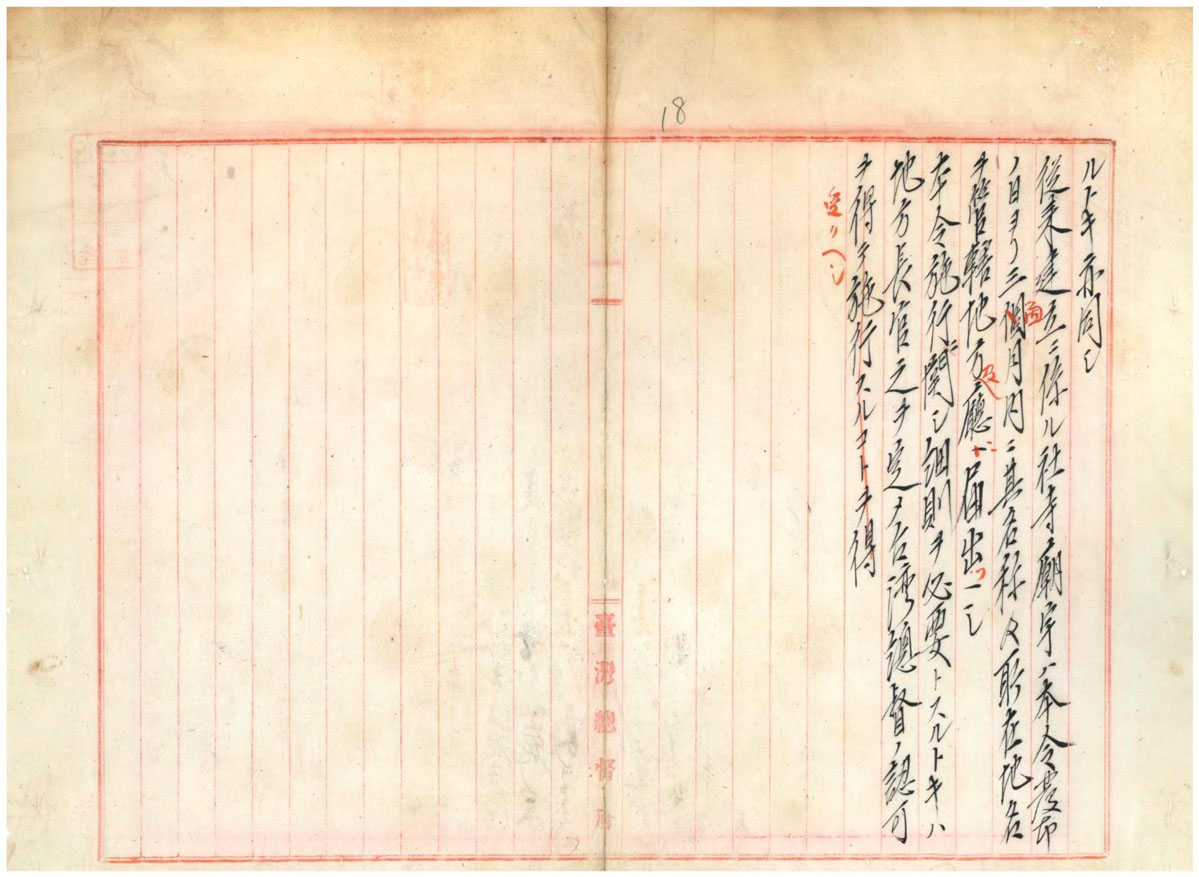 18
ルトキ亦同シ
従来建立ニ係ル社寺廟宇ハ本令発布
ノ日ヨリ三個月内ニ其名称及所在地名
ヲ管轄地方廳ヘ届出ヘシ
本令施行ニ関シ細則ヲ必要トスルトキハ
地方長官之ヲ定メ台湾総督ノ認可
ヲ得テ施行スルコトヲ得
受クヘシ
臺灣總督府